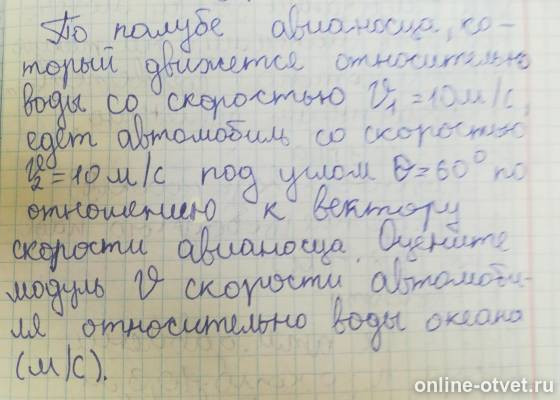 По палубе авианосца, ко-
торый движется относительно
воды со скоростью V₁ = 10 м/с,
едет автомобиль со скоростью
V₂ = 10 м/с под углом θ = 60° по
отношению к вектору
скорости авианосца. Оцените
модуль V скорости автомоби-
ля относительно воды океана
(м/с).
online-otvet.ru